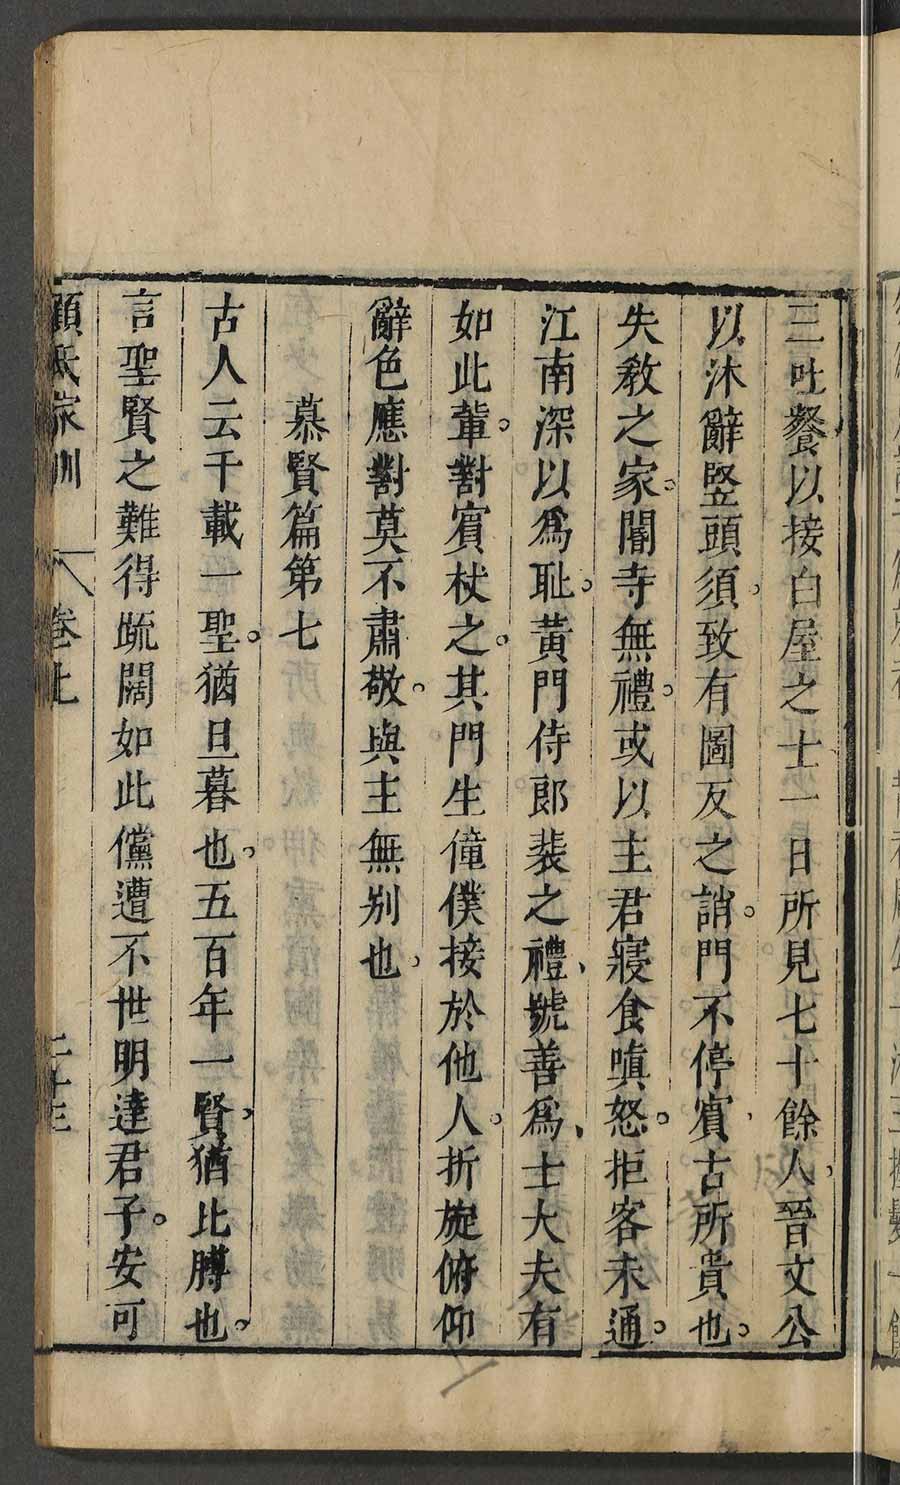 三吐餐以接白屋之士一日所見七十餘人晉文公
以沐辭竪頭須致有圖反之誚門不停賓古所貴也
失敎之家閽寺無禮或以主君寢食嗔怒拒客未通
江南深以爲耻黃門侍郎裴之禮號善爲士大夫有
如此輩對賓杖之其門生僮僕接於他人折旋俯仰
辭色應對莫不肅敬與主無别也
慕賢篇第七
古人云千載一聖猶旦暮也五百年一賢猶比髆也
言聖賢之難得疏闊如此儻遭不世明達君子安可
顏氏家訓 卷上 二十三